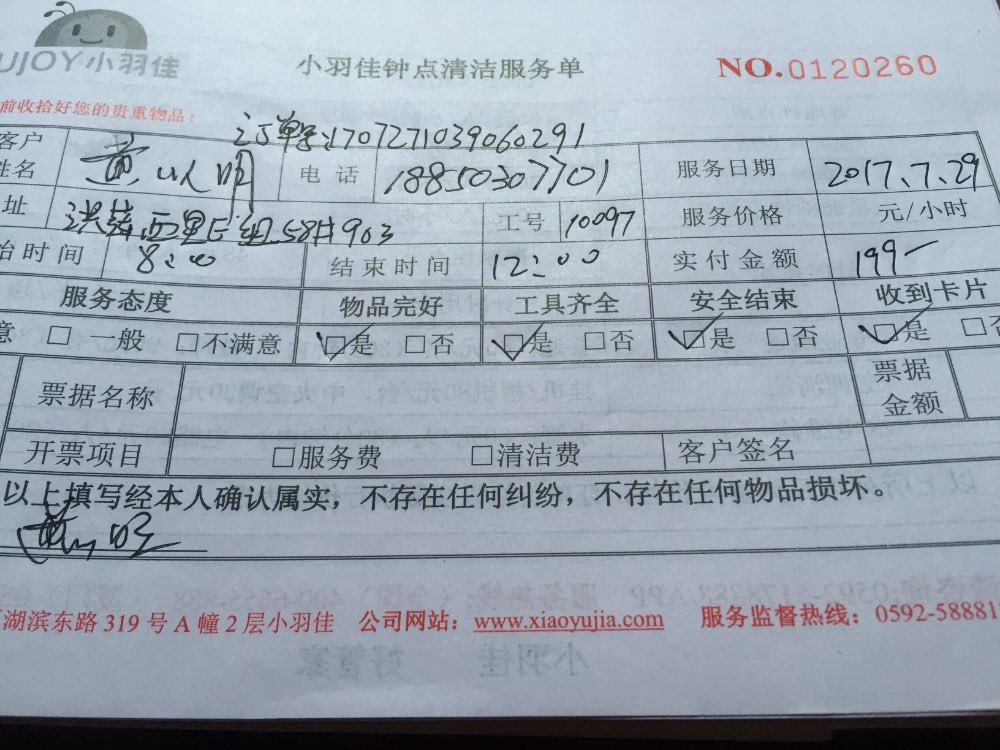 UJOY小羽佳 小羽佳钟点清洁服务单 NO.0120260
前收拾好您的贵重物品：
订单号1707271039060291
客户姓名 黄以明 电话 18850307701 服务日期 2017.7.29
址 洪莲西里E组58#903 工号 10097 服务价格 元/小时
始时间 8:00 结束时间 12:00 实付金额 199-
服务态度 物品完好 工具齐全 安全结束 收到卡片
意 □一般 □不满意 ☑是 □否 ☑是 □否 ☑是 □否 ☑是 □否
票据名称 票据金额
开票项目 □服务费 □清洁费 客户签名
以上填写经本人确认属实，不存在任何纠纷，不存在任何物品损坏。
湖滨东路 319 号 A 幢 2 层小羽佳 公司网站：www.xiaoyujia.com 服务监督热线：0592-58881